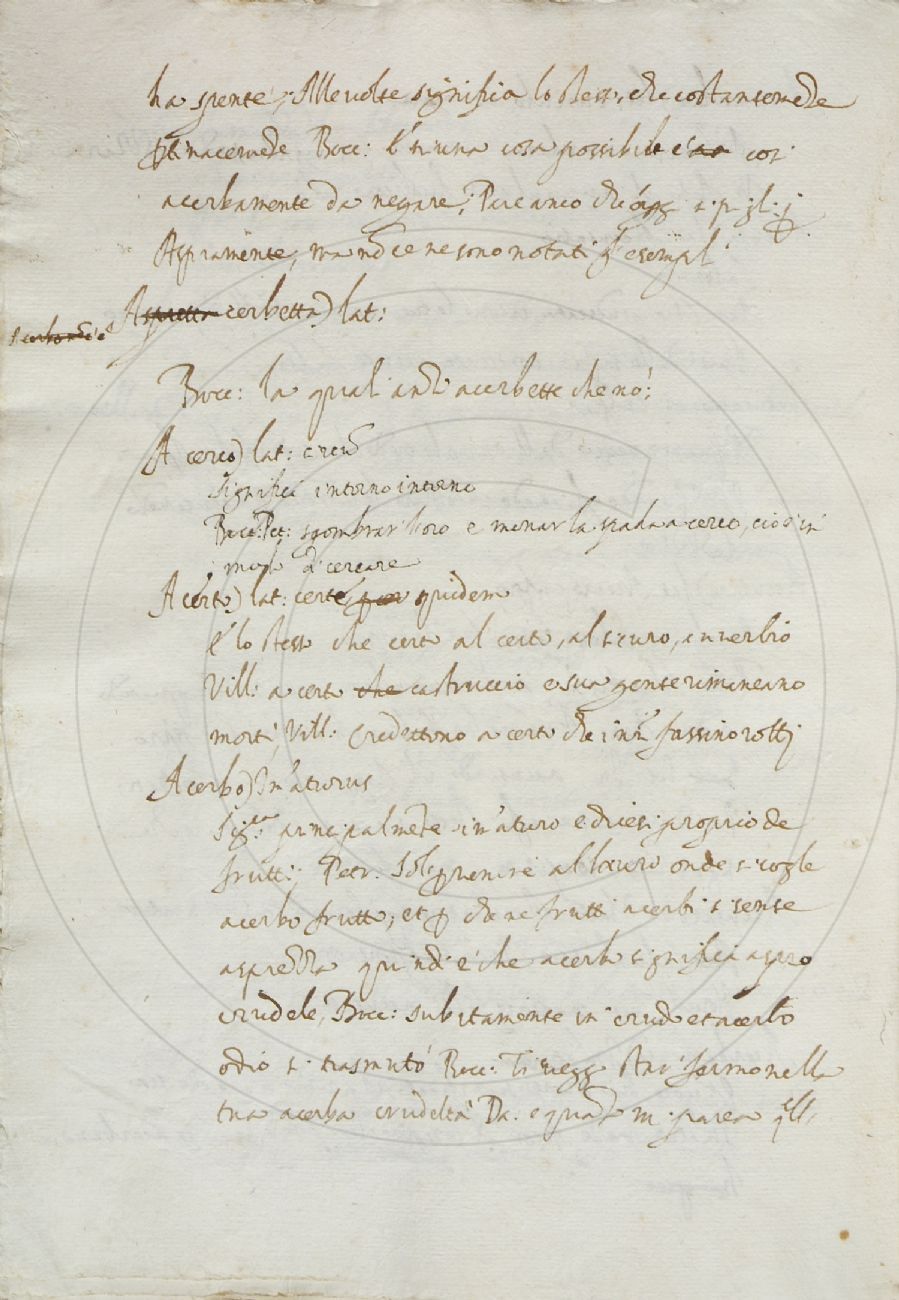 ha spente; Alle volte significa lo stesso, che costantemẽte
ꝑtinacemẽte Bocc: È si una cosa possibile cosi
acerbamente da negare; Pare anco che ogg si pigli ꝑ
Aspramente, ma nõ ce ne sono notati gl' esempli
A spretta cerbetta) lat:
Bocc: la quale anzi acerbetta che nò:
A cerco) lat: circũ
Significa intorno intorno
Bocc: Pet: sgombrar l'oro e menar la spada a cerco, cioè in
modo di cercare
A certo) lat: certè, quidem
È lo stesso che certo al certo, al sicuro, auverbio
Vill: a certo che castruccio e sua gente rimineano
morti, Vill: Credettono a certo che i nri fussino rotti
Acerbo) Immaturus
Sig.ca principalmẽte immaturo e dicesi proprio de
frutti; Petr. Sol ꝑ venire al lauro onde si cogle
acerbo frutto; et ꝑ che ne frutti acerbi si sente
asprezza quindi è che acerbo significa aspro
crudele, Bocc: subitamente in crudo et acerbo
odio si trasmutò Bocc: Ti vegg
tua acerba crudeltà Da: e quanto mi parea